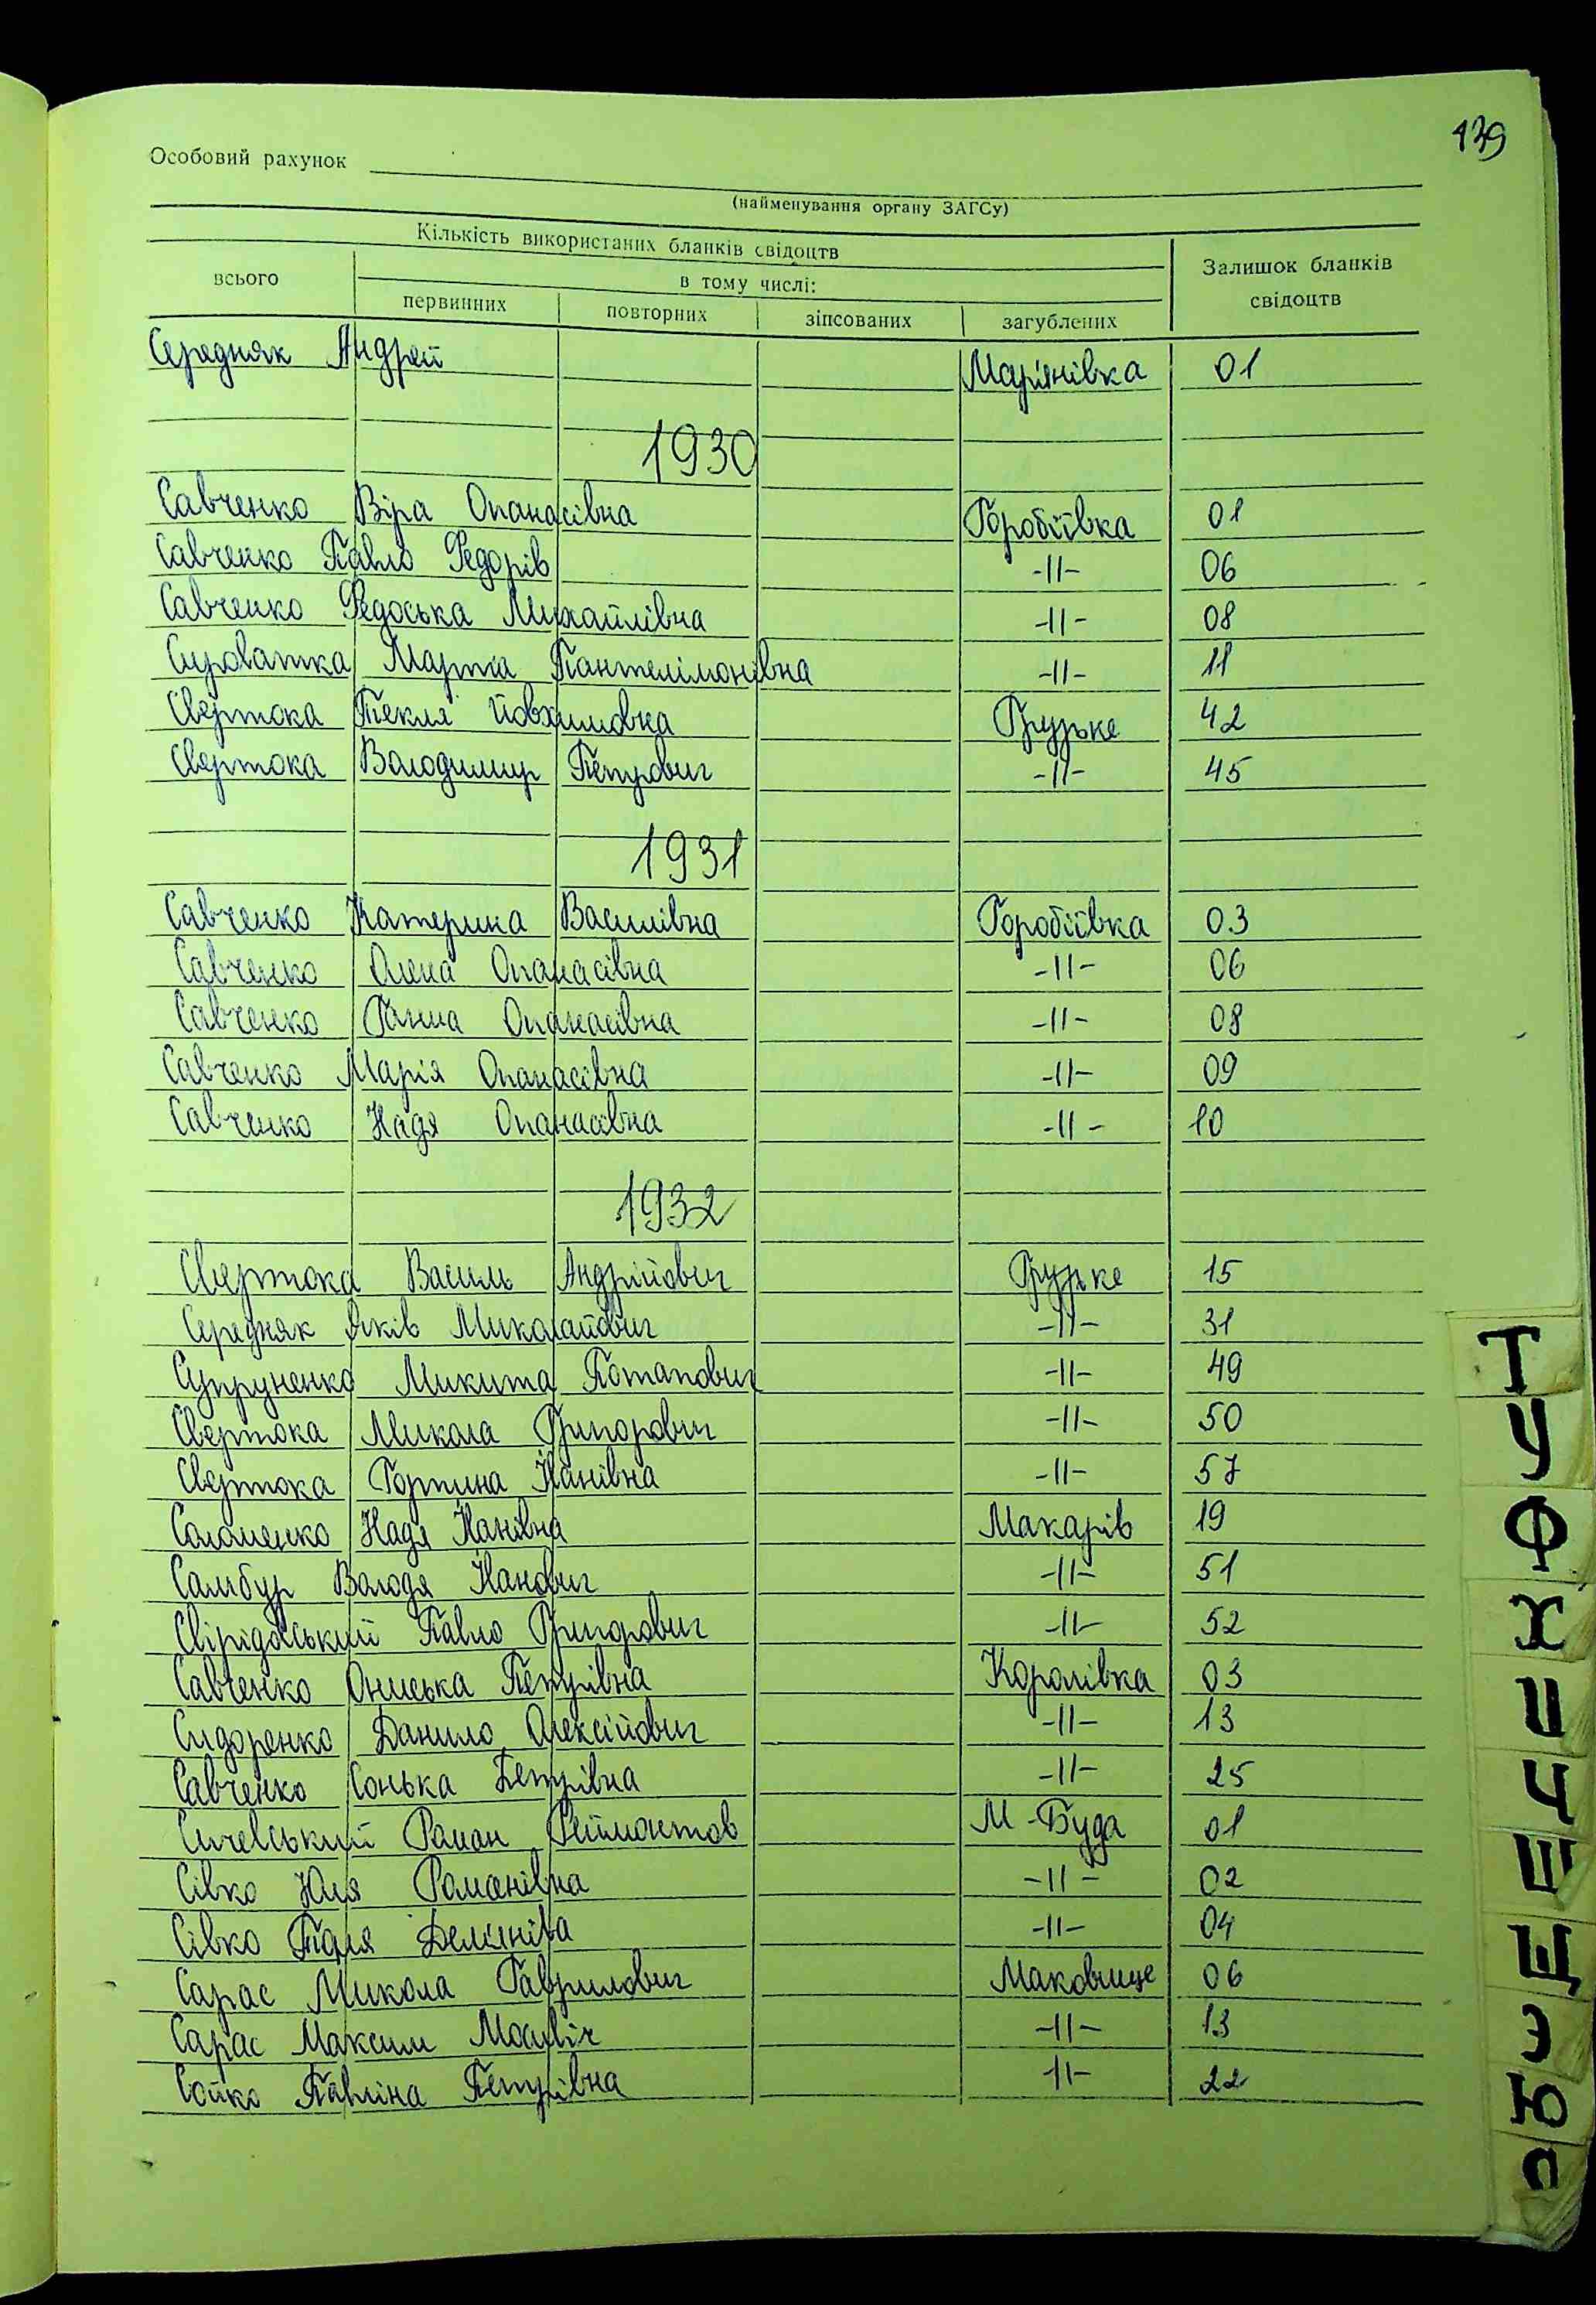 139
Особовий рахунок
(найменування органу ЗАГСу)
Кількість використаних бланків свідоцтв
Залишок бланків свідоцтв
всього
в тому числі:
первинних повторних зіпсованих загублених
Середняк Андрей Мар'янівка 01
1930
Савченко Віра Опанасівна Горобіївка 01
Савченко Павло Федорів -11- 06
Савченко Федоська Михайлівна -11- 08
Сироватка Марта Пантелімонівна -11- 11
Свертока Текля Йовхимовна Грузьке 42
Свертока Володимир Петрович -11- 45
1931
Савченко Катерина Василівна Горобіївка 03
Савченко Олена Опанасівна -11- 06
Савченко Ганна Опанасівна -11- 08
Савченко Марія Опанасівна -11- 09
Савченко Надя Опанасівна -11- 10
1932
Свертока Василь Андрійович Грузьке 15
Середняк Яків Миколайович -11- 31
Супруненко Микита Потапович -11- 49
Свертока Микола Григорович -11- 50
Свертока Горпина Іванівна -11- 57
Соломенко Надя Іванівна Макарів 19
Самбур Володя Іванович -11- 51
Свірідовський Павло Григорович -11- 52
Савченко Ониська Петрівна Королівка 03
Сидоренко Данило Олексійович -11- 13
Савченко Сонька Петрівна -11- 25
Сичевський Роман М-Буда 01
Сівко Юля Романівна -11- 02
Сівко -11- 04
Сарас Микола Гаврилович Маковище 06
Сарас Максим -11- 13
Сойко Павліна Петрівна -11- 22
Т
У
Ф
Х
Ц
Ч
Ш
Щ
Э
Ю